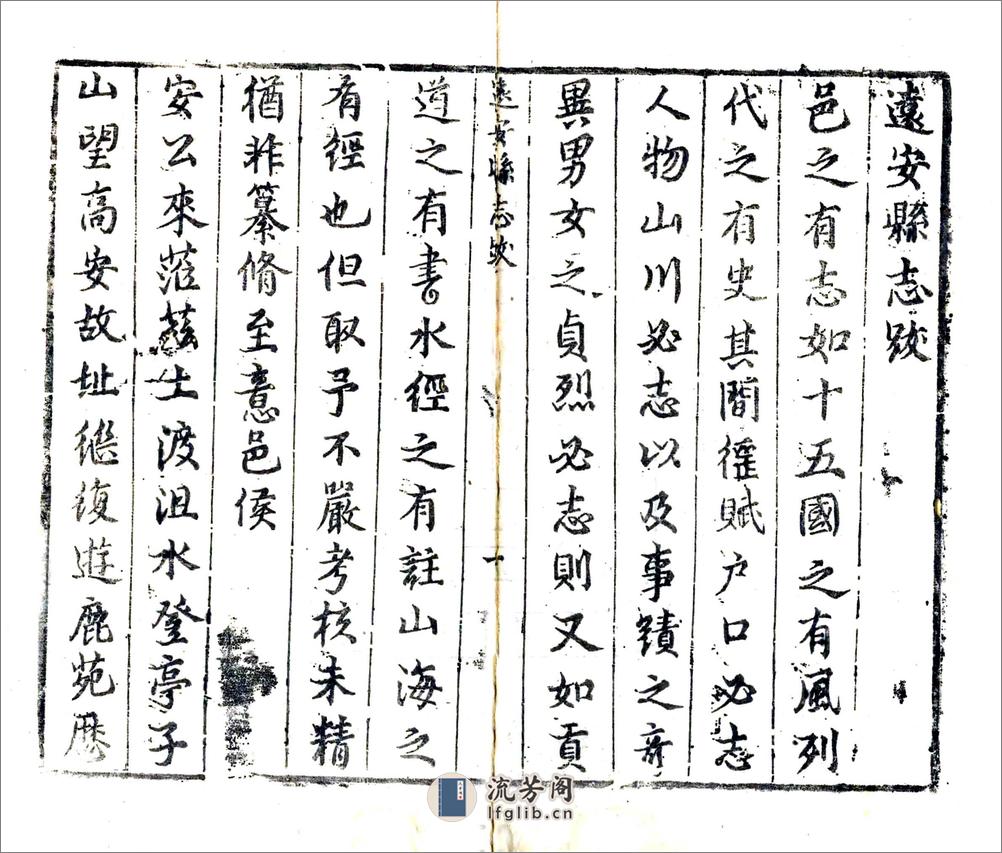 遠安縣志跋
邑之有志如十五國之有風列
代之有史其間徭賦户口必志
人物山川必志以及事蹟之竒
異男女之貞烈必志則又如貢
遠安縣志跋
一
道之有書水經之有註山海之
有經也但取予不嚴考核未精
猶非纂脩至意邑侯
安公來蒞茲土渡沮水登亭子
山望高安故址繼復遊鹿苑歷
流芳阁
lfglib.cn